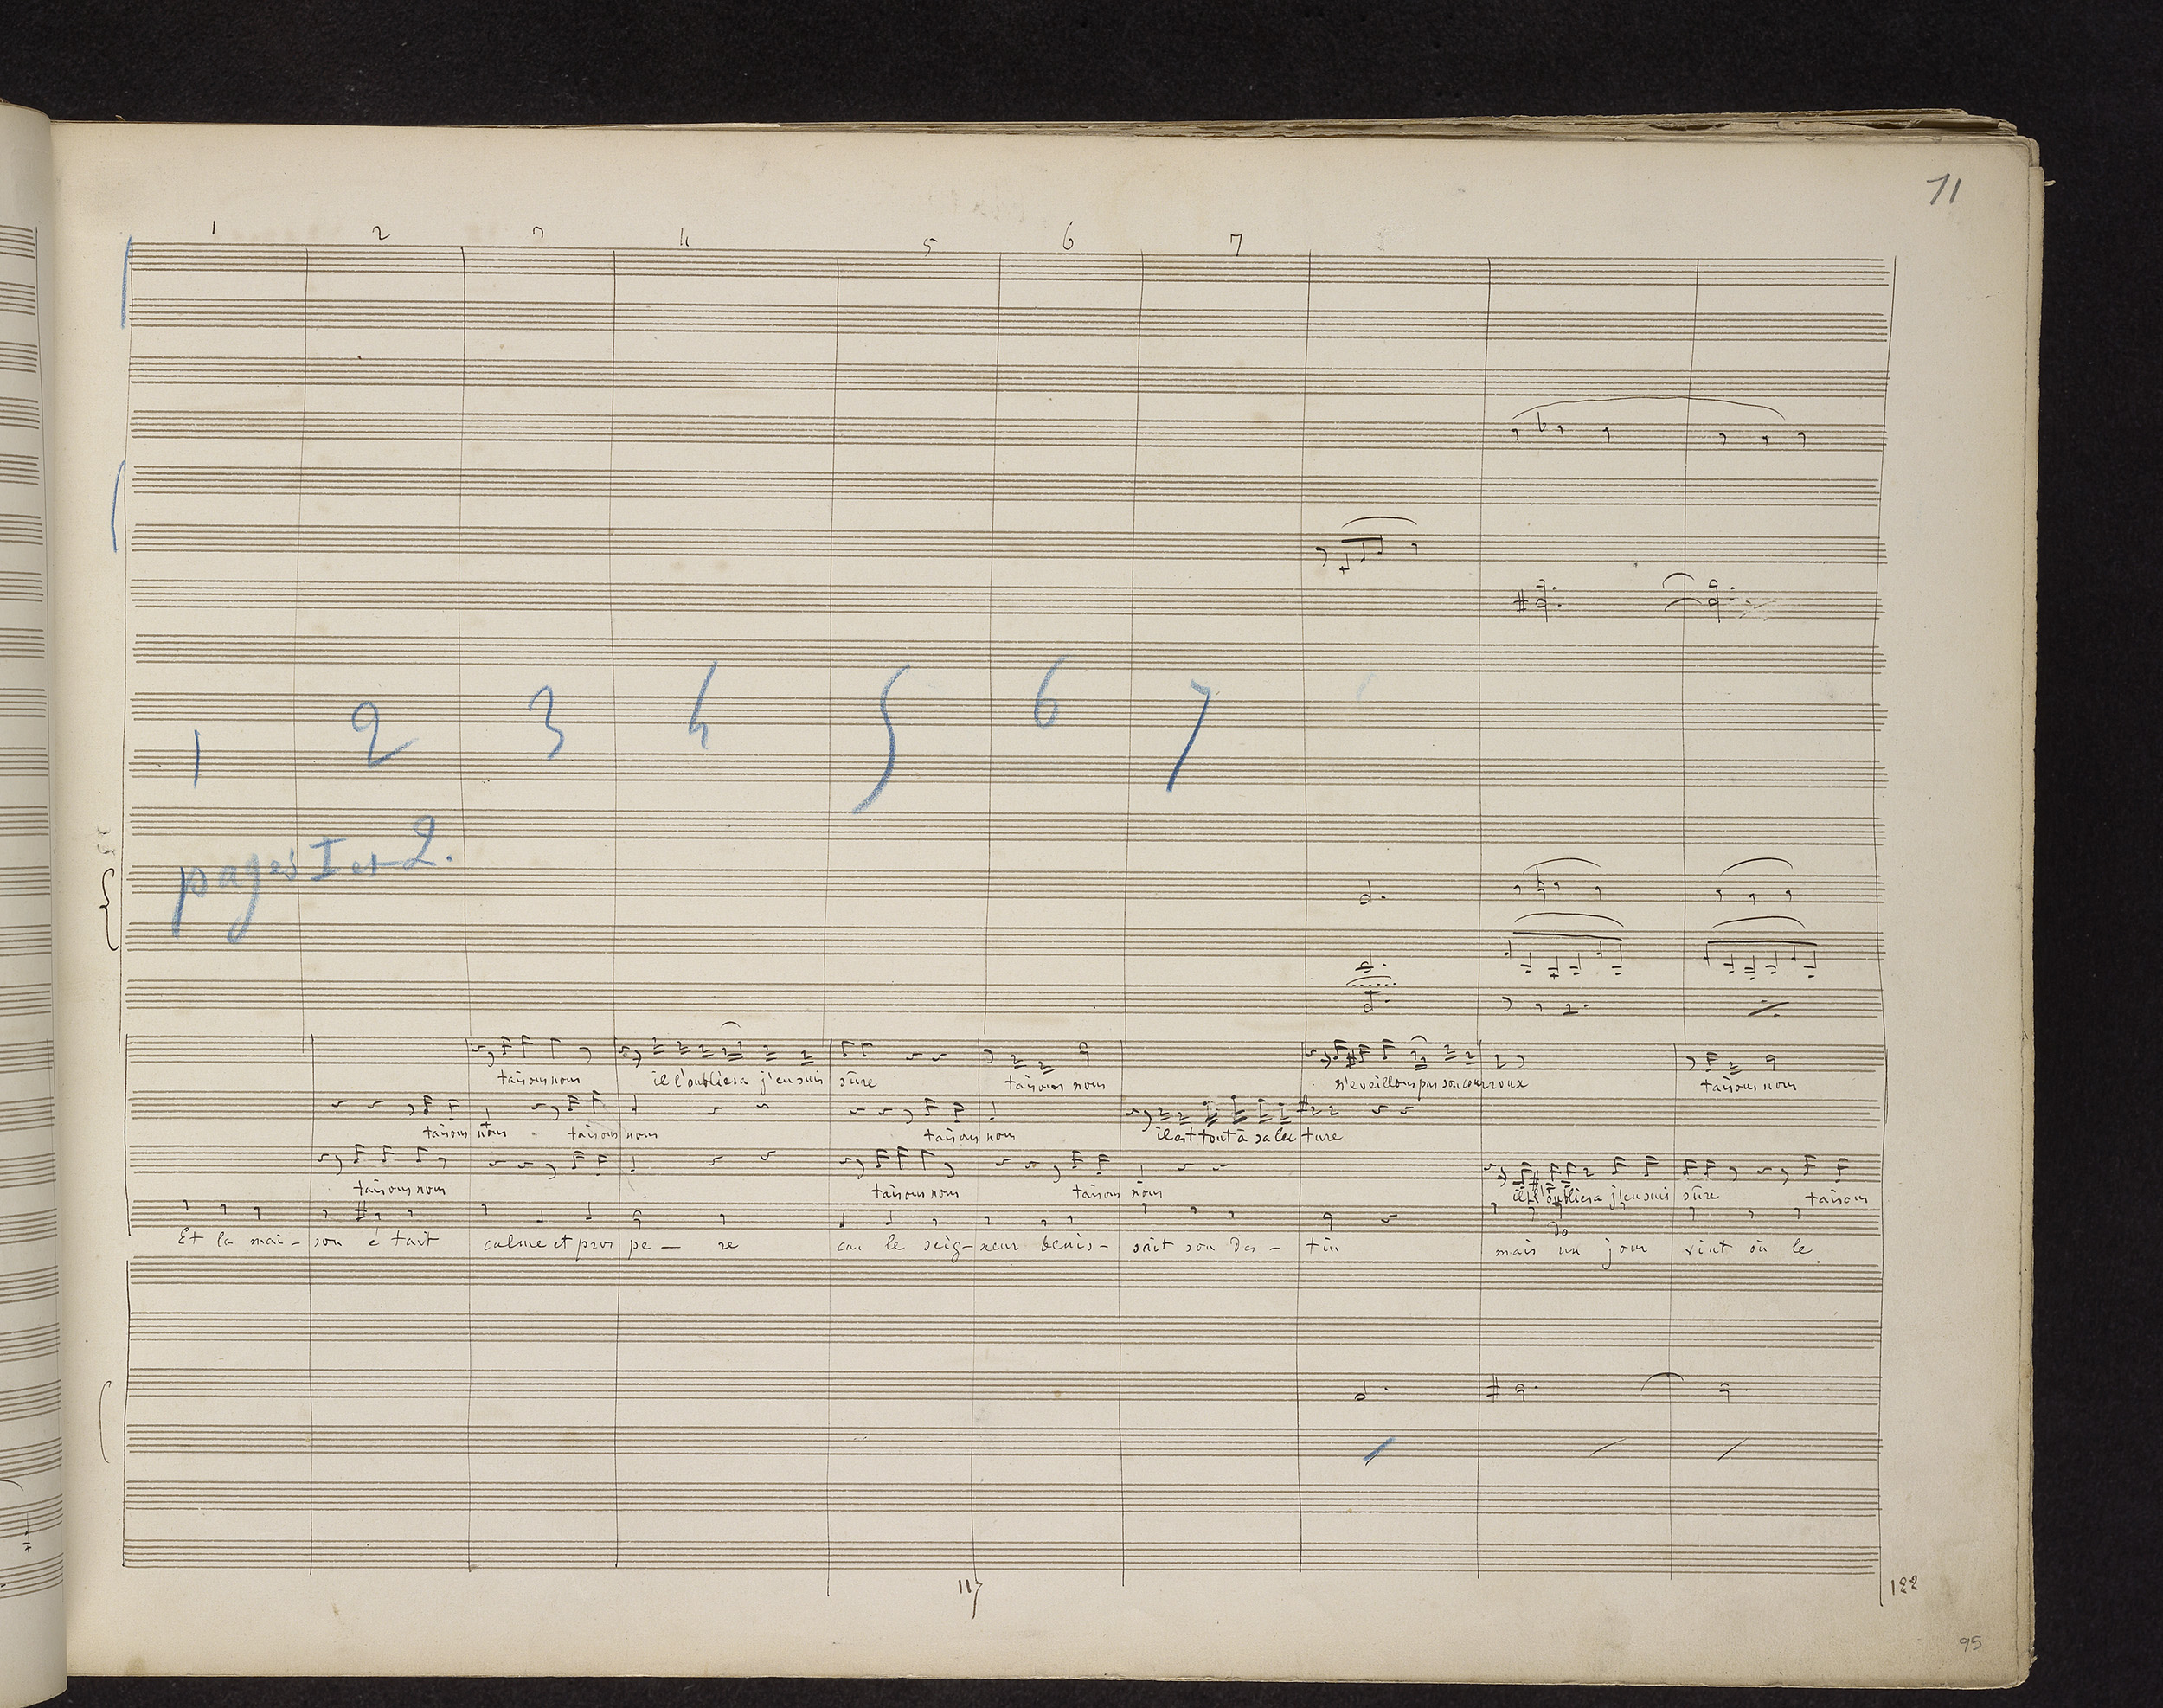 71
1 2 3 4 5 6 7
1 2 3 4 5 6 7
pages I et 2.
taisons nous il l'oubliera j'en suis sûre taisons nous n'eveillons pas son courroux taisons nous
taisons nous taisons nous taisons nous il est tout à sa lecture
taisons nous taisons nous taisons nous il l'oubliera j'en suis sûre taisons
do
Et la mai - son é tait calme et pros pe - re car le seig - neur benis - sait son des - tin mais un jour vint où le
117
122
95